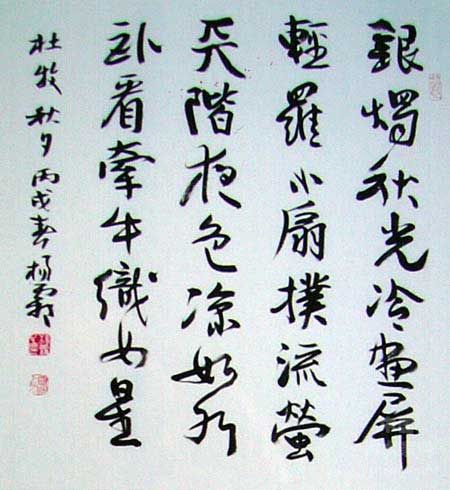 銀燭秋光冷畫屏
輕羅小扇撲流螢
天階夜色凉如水
卧看牽牛織女星
杜牧秋夕丙戌春楊